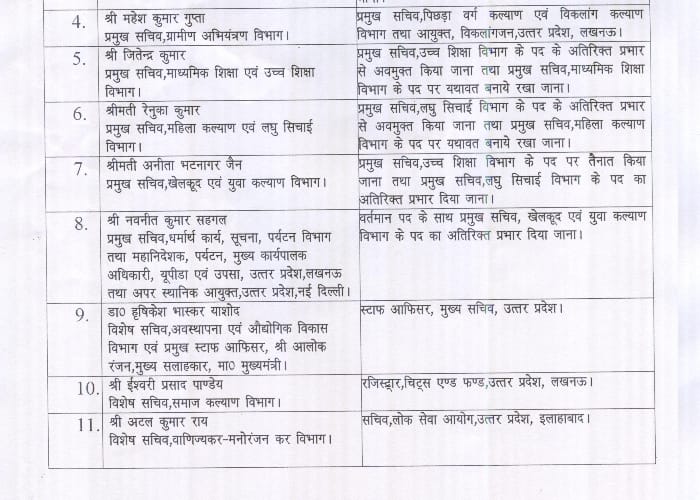 4.
श्री महेश कुमार गुप्ता
प्रमुख सचिव,ग्रामीण अभियंत्रण विभाग।
प्रमुख सचिव,पिछड़ा वर्ग कल्याण एवं विकलांग कल्याण
विभाग तथा आयुक्त, विकलांगजन,उत्तर प्रदेश, लखनऊ।
5.
श्री जितेन्द्र कुमार
प्रमुख सचिव,माध्यमिक शिक्षा एवं उच्च शिक्षा
विभाग।
प्रमुख सचिव,उच्च शिक्षा विभाग के पद के अतिरिक्त प्रभार
से अवमुक्त किया जाना तथा प्रमुख सचिव,माध्यमिक शिक्षा
विभाग के पद पर यथावत बनाये रखा जाना।
6.
श्रीमती रेनुका कुमार
प्रमुख सचिव,महिला कल्याण एवं लघु सिचाई
विभाग।
प्रमुख सचिव,लघु सिचाई विभाग के पद के अतिरिक्त प्रभार
से अवमुक्त किया जाना तथा प्रमुख सचिव,महिला कल्याण
विभाग के पद पर यथावत बनाये रखा जाना।
7.
श्रीमती अनीता भटनागर जैन
प्रमुख सचिव,खेलकूद एवं युवा कल्याण विभाग।
प्रमुख सचिव,उच्च शिक्षा विभाग के पद पर तैनात किया
जाना तथा प्रमुख सचिव,लघु सिचाई विभाग के पद का
अतिरिक्त प्रभार दिया जाना।
8.
श्री नवनीत कुमार सहगल
प्रमुख सचिव,धर्मार्थ कार्य, सूचना, पर्यटन विभाग
तथा महानिदेशक, पर्यटन, मुख्य कार्यपालक
अधिकारी, यूपीडा एवं उपसा, उत्तर प्रदेश,लखनऊ
तथा अपर स्थानिक आयुक्त,उत्तर प्रदेश,नई दिल्ली।
वर्तमान पद के साथ प्रमुख सचिव, खेलकूद एवं युवा कल्याण
विभाग के पद का अतिरिक्त प्रभार दिया जाना।
9.
डा0 हृषिकेश भास्कर याशोद
विशेष सचिव,अवस्थापना एवं औद्योगिक विकास
विभाग एवं प्रमुख स्टाफ आफिसर, श्री आलोक
रंजन,मुख्य सलाहकार, मा0 मुख्यमंत्री।
स्टाफ आफिसर, मुख्य सचिव, उत्तर प्रदेश।
10.
श्री ईश्वरी प्रसाद पाण्डेय
विशेष सचिव,समाज कल्याण विभाग।
रजिस्ट्रार,चिट्स एण्ड फण्ड,उत्तर प्रदेश, लखनऊ।
11.
श्री अटल कुमार राय
विशेष सचिव,वाणिज्यकर-मनोरंजन कर विभाग।
सचिव,लोक सेवा आयोग,उत्तर प्रदेश, इलाहाबाद।